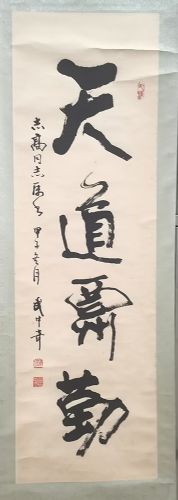 天道酬勤
志高同志属书 甲子冬月 武中奇